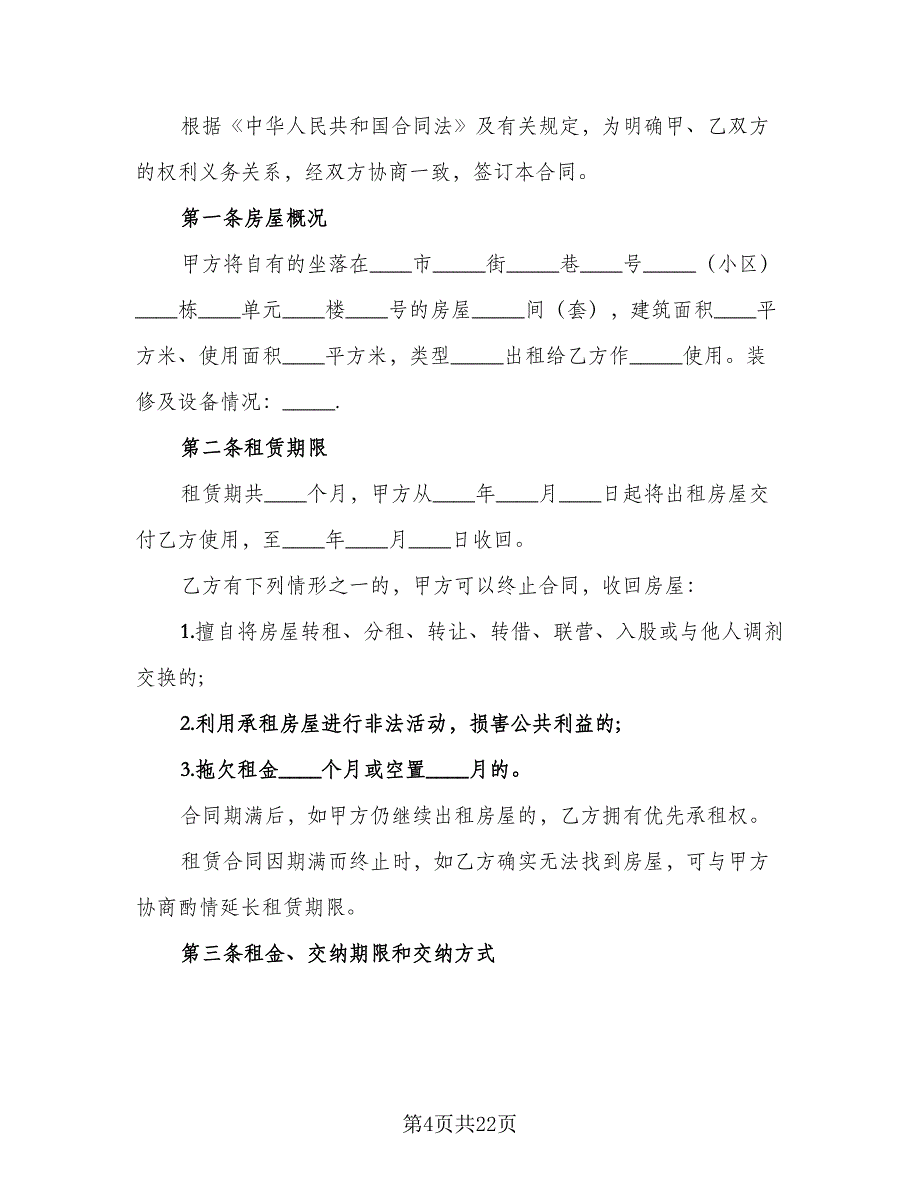 根据《中华人民共和国合同法》及有关规定，为明确甲、乙双方
的权利义务关系，经双方协商一致，签订本合同。
第一条房屋概况
甲方将自有的坐落在____市_____街_____巷____号_____（小区）
____栋____单元____楼____号的房屋_____间（套），建筑面积____平
方米、使用面积____平方米，类型_____出租给乙方作_____使用。装
修及设备情况：_____.
第二条租赁期限
租赁期共____个月，甲方从____年____月____日起将出租房屋交
付乙方使用，至____年____月____日收回。
乙方有下列情形之一的，甲方可以终止合同，收回房屋：
1.擅自将房屋转租、分租、转让、转借、联营、入股或与他人调剂
交换的;
2.利用承租房屋进行非法活动，损害公共利益的;
3.拖欠租金____个月或空置____月的。
合同期满后，如甲方仍继续出租房屋的，乙方拥有优先承租权。
租赁合同因期满而终止时，如乙方确实无法找到房屋，可与甲方
协商酌情延长租赁期限。
第三条租金、交纳期限和交纳方式
第4页共22页